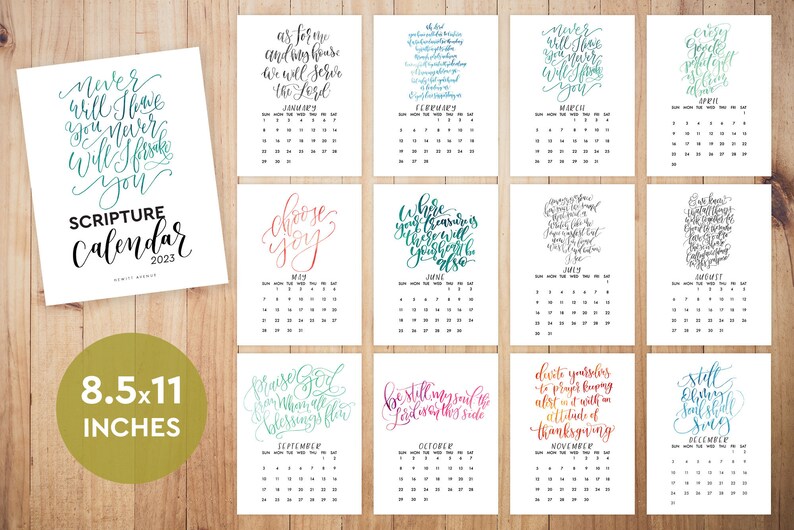 never
will I leave
you never
will I forsake
you
SCRIPTURE
Calendar
2023
HEWITT AVENUE
8.5x11
INCHES
as for me
and my house
we will serve
the Lord
JANUARY
SUN MON TUE WED THU FRI SAT
1 2 3 4 5 6 7
8 9 10 11 12 13 14
15 16 17 18 19 20 21
22 23 24 25 26 27 28
29 30 31
FEBRUARY
SUN MON TUE WED THU FRI SAT
1 2 3 4
5 6 7 8 9 10 11
12 13 14 15 16 17 18
19 20 21 22 23 24 25
26 27 28
never
will I leave
you never
will I forsake
you
MARCH
SUN MON TUE WED THU FRI SAT
1 2 3 4
5 6 7 8 9 10 11
12 13 14 15 16 17 18
19 20 21 22 23 24 25
26 27 28 29 30 31
every
good &
perfect gift
is from
above
APRIL
SUN MON TUE WED THU FRI SAT
1
2 3 4 5 6 7 8
9 10 11 12 13 14 15
16 17 18 19 20 21 22
23 24 25 26 27 28 29
30
choose
joy
MAY
SUN MON TUE WED THU FRI SAT
1 2 3 4 5 6
7 8 9 10 11 12 13
14 15 16 17 18 19 20
21 22 23 24 25 26 27
28 29 30 31
where
your treasure is
there will
your heart be
also
JUNE
SUN MON TUE WED THU FRI SAT
1 2 3
4 5 6 7 8 9 10
11 12 13 14 15 16 17
18 19 20 21 22 23 24
25 26 27 28 29 30
JULY
SUN MON TUE WED THU FRI SAT
1
2 3 4 5 6 7 8
9 10 11 12 13 14 15
16 17 18 19 20 21 22
23 24 25 26 27 28 29
30 31
& we know
that all things
AUGUST
SUN MON TUE WED THU FRI SAT
1 2 3 4 5
6 7 8 9 10 11 12
13 14 15 16 17 18 19
20 21 22 23 24 25 26
27 28 29 30 31
praise God
from Whom all
blessings flow
SEPTEMBER
SUN MON TUE WED THU FRI SAT
1 2
3 4 5 6 7 8 9
10 11 12 13 14 15 16
17 18 19 20 21 22 23
24 25 26 27 28 29 30
be still, my soul the
Lord is on thy side
OCTOBER
SUN MON TUE WED THU FRI SAT
1 2 3 4 5 6 7
8 9 10 11 12 13 14
15 16 17 18 19 20 21
22 23 24 25 26 27 28
29 30 31
devote yourselves
to prayer keeping
alert in it with an
attitude of
thanksgiving
NOVEMBER
SUN MON TUE WED THU FRI SAT
1 2 3 4
5 6 7 8 9 10 11
12 13 14 15 16 17 18
19 20 21 22 23 24 25
26 27 28 29 30
still
O my
Soul shall
sing
DECEMBER
SUN MON TUE WED THU FRI SAT
1 2
3 4 5 6 7 8 9
10 11 12 13 14 15 16
17 18 19 20 21 22 23
24 25 26 27 28 29 30
31